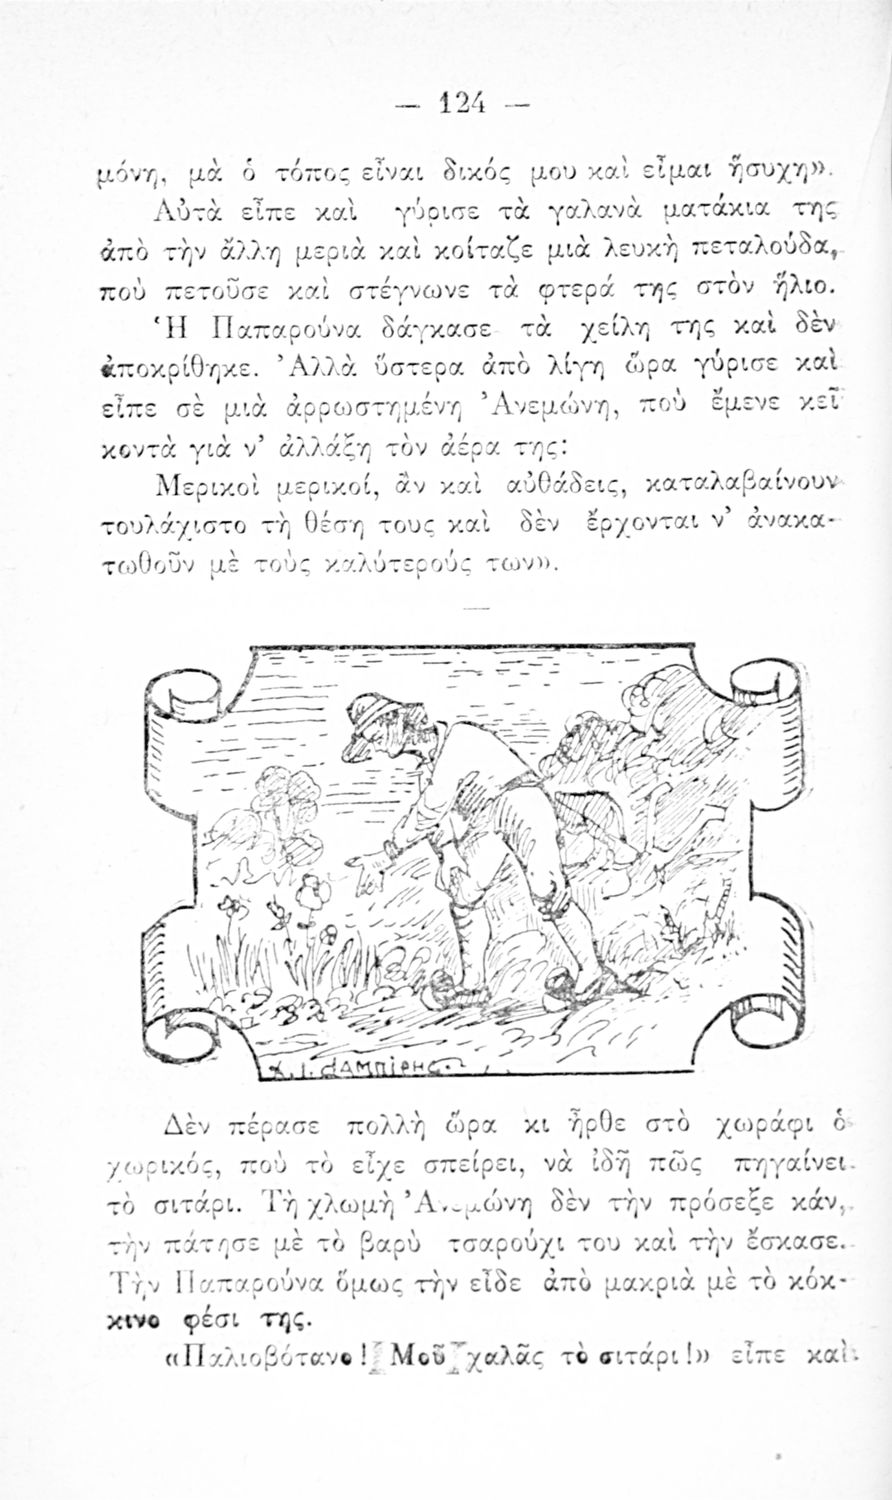 — 124 —
μόνη, μὰ ὁ τόπος εἶναι δικός μου καὶ εἶμαι ἥσυχη».
Αὐτὰ εἶπε καὶ γύρισε τὰ γαλανὰ ματάκια της
ἀπὸ τὴν ἄλλη μεριὰ καὶ κοίταζε μιὰ λευκὴ πεταλούδα,
ποὺ πετοῦσε καὶ στέγνωνε τὰ φτερά της στὸν ἥλιο.
Ἡ Παπαρούνα δάγκασε τὰ χείλη της καὶ δὲν
ἀποκρίθηκε. Ἀλλὰ ὕστερα ἀπὸ λίγη ὥρα γύρισε καὶ
εἶπε σὲ μιὰ ἀρρωστημένη Ἀνεμώνη, ποὺ ἔμενε κεῖ
κοντὰ γιὰ ν' ἀλλάξη τὸν ἀέρα της:
Μερικοὶ μερικοί, ἂν καὶ αὐθάδεις, καταλαβαίνουν
τουλάχιστο τὴ θέση τους καὶ δὲν ἔρχονται ν' ἀνακα-
τωθοῦν μὲ τοὺς καλύτερούς των».
Χ. Ι. ΔΑΜΠΙΡΗΣ
Δὲν πέρασε πολλὴ ὥρα κι ἦρθε στὸ χωράφι ὁ
χωρικός, ποὺ τὸ εἶχε σπείρει, νὰ ἰδῆ πῶς πηγαίνει
τὸ σιτάρι. Τὴ χλωμὴ Ἀνεμώνη δὲν τὴν πρόσεξε κάν,
τὴν πάτησε μὲ τὸ βαρὺ τσαρούχι του καὶ τὴν ἔσκασε.
Τὴν Παπαρούνα ὅμως τὴν εἶδε ἀπὸ μακριὰ μὲ τὸ κόκ-
κινο φέσι της.
«Παλιοβότανο! Μοῦ χαλᾶς τὸ σιτάρι!» εἶπε καὶ